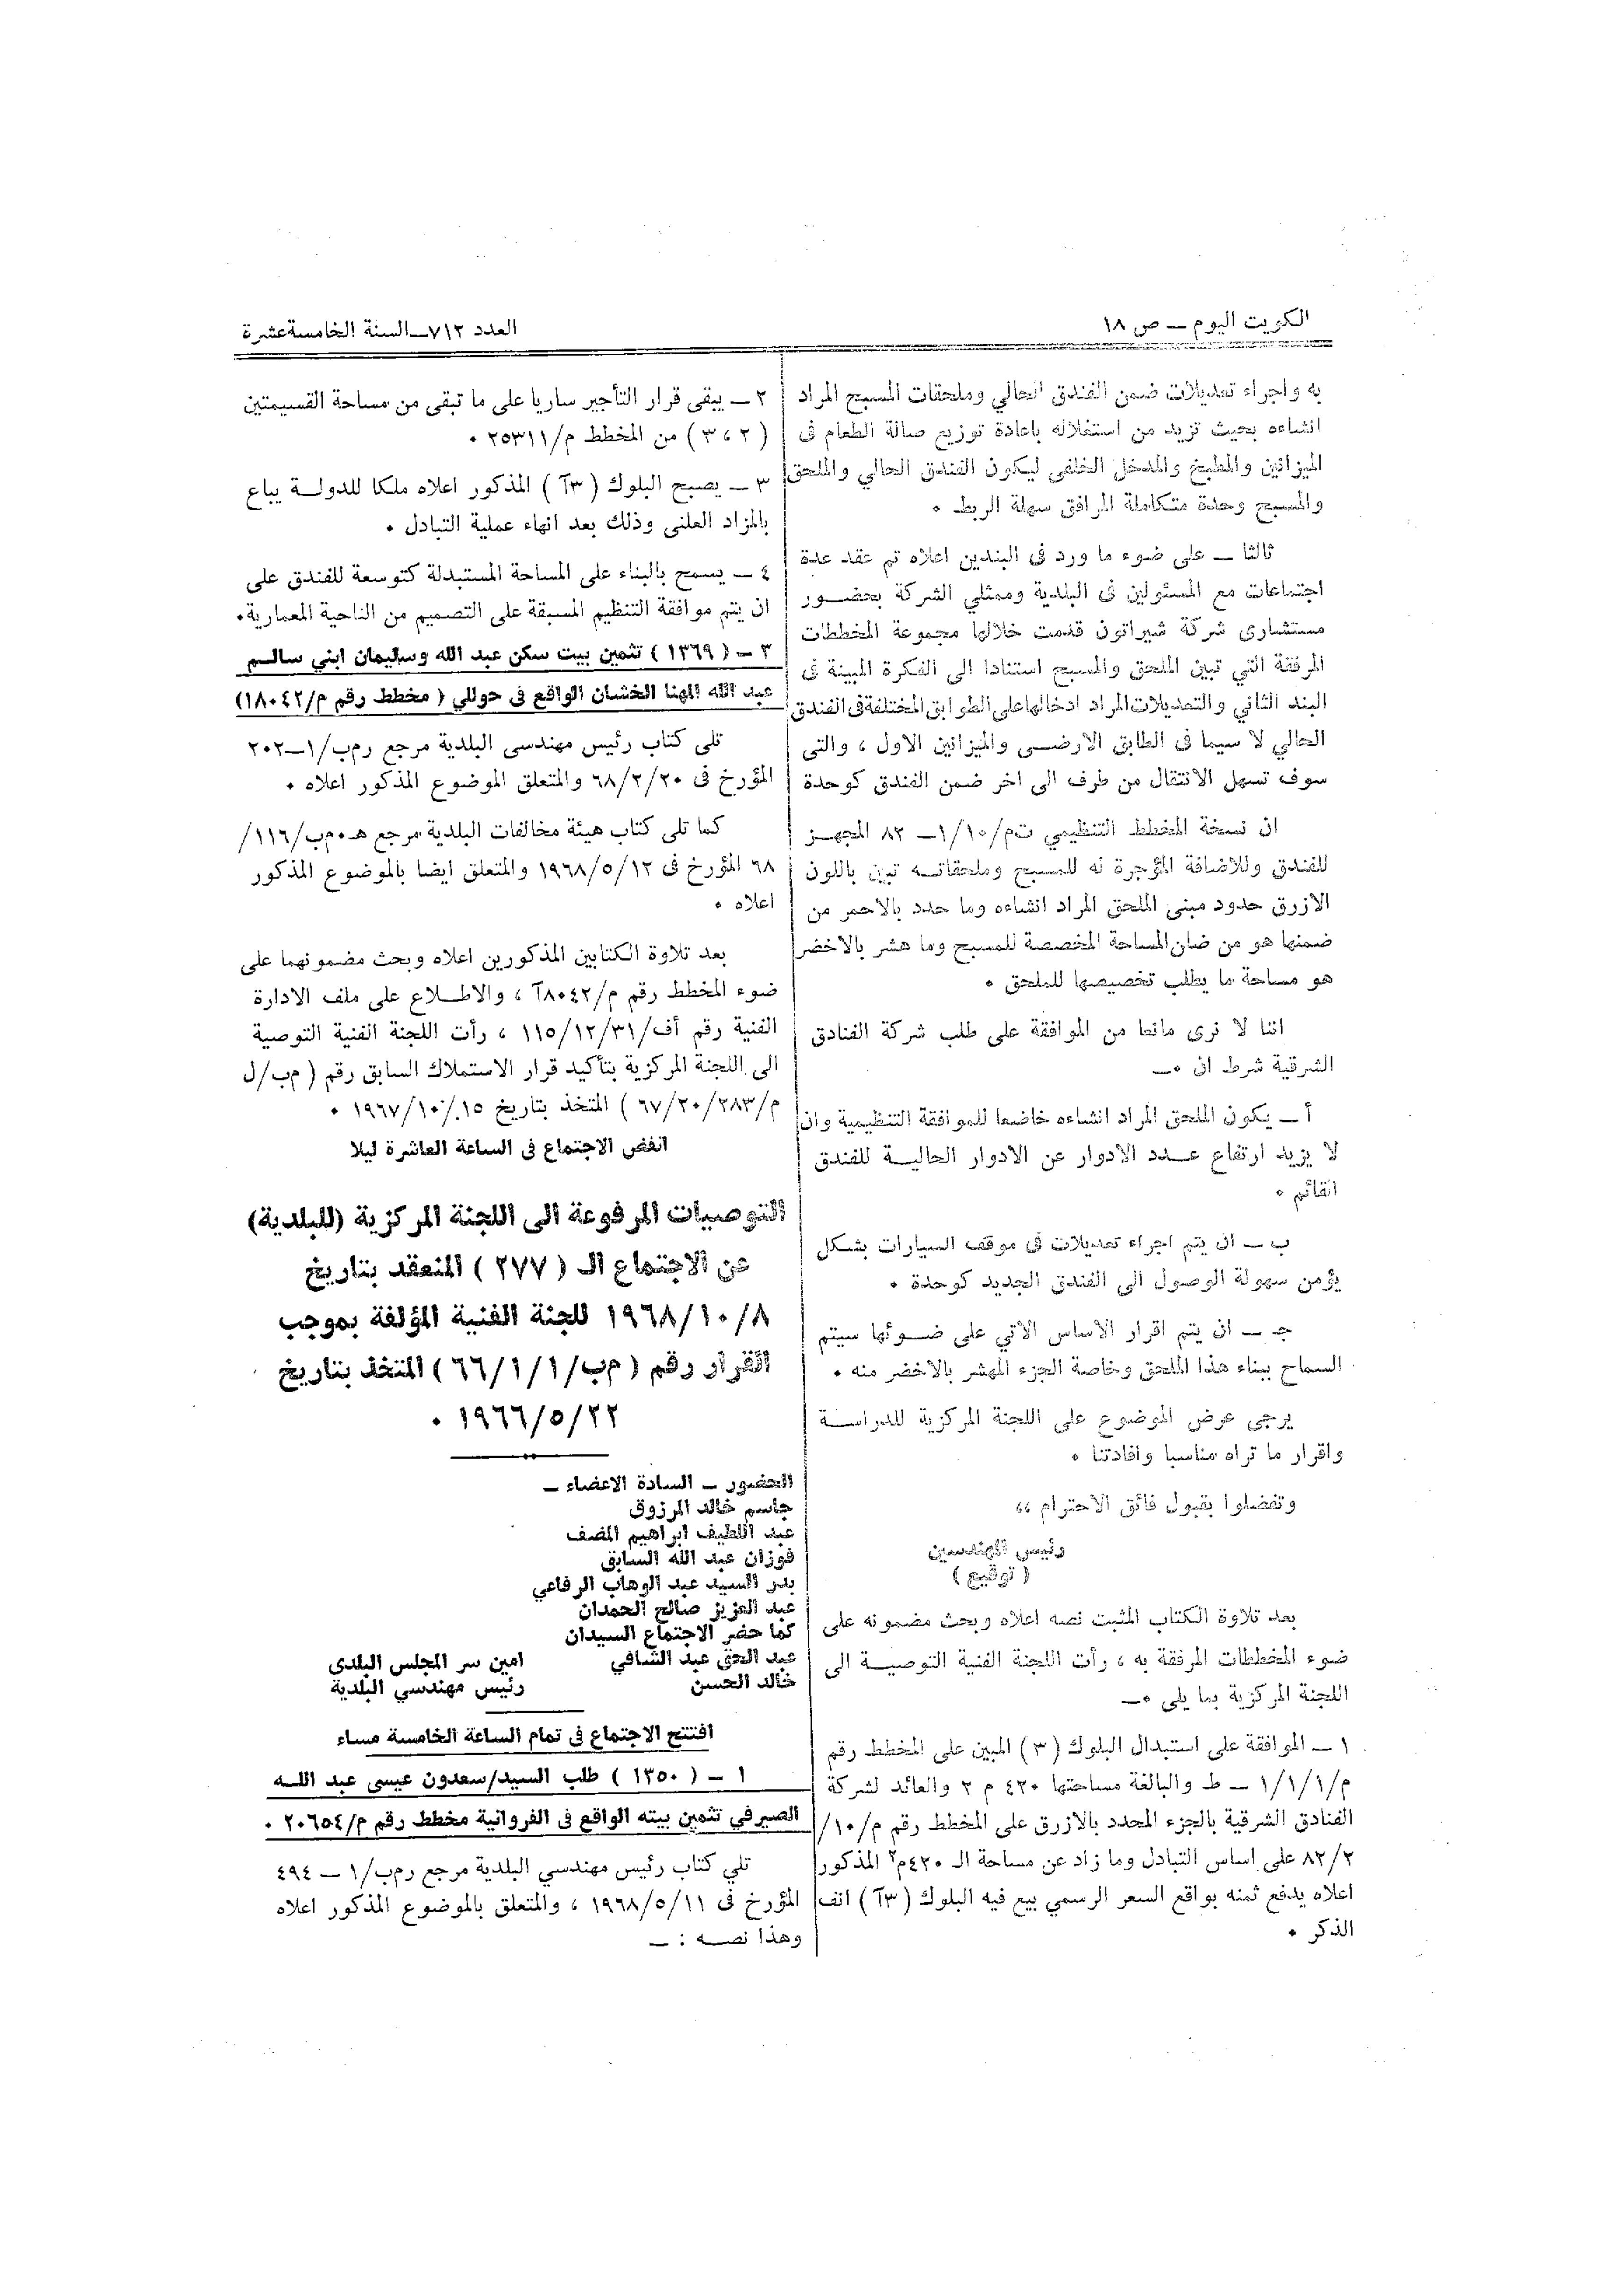 الكويت اليوم — ص ١٨
العدد ٧١٢—السنة الخامسة عشرة
به واجراء تعديلات ضمن الفندق الحالي وملحقات المسبح المراد
انشاءه بحيث تزيد من استغلاله باعادة توزيع صالة الطعام في
الميزانين والمطبخ والمدخل الخلفي ليكون الفندق الحالي والملحق
والمسبح وحدة متكاملة المرافق سهلة الربط .
ثالثا — على ضوء ما ورد في البندين اعلاه تم عقد عدة
اجتماعات مع المسئولين في البلدية وممثلي الشركة بحضور
مستشاري شركة شيراتون قدمت خلالها مجموعة المخططات
المرفقة التي تبين الملحق والمسبح استنادا الى الفكرة المبينة في
البند الثاني والتعديلات المراد ادخالها على الطوابق المختلفة في الفندق
الحالي لا سيما في الطابق الارضي والميزانين الاول ، والتى
سوف تسهل الانتقال من طرف الى اخر ضمن الفندق كوحدة
ان نسخة المخطط التنظيمي ت م/١/١٠— ٨٢ المجهز
للفندق وللاضافة المؤجرة له للمسبح وملحقاته تبين باللون
الازرق حدود مبنى الملحق المراد انشاءه وما حدد بالاحمر من
ضمنها هو من ضان المساحة المخصصة للمسبح وما هشر بالاخضر
هو مساحة ما يطلب تخصيصها للملحق .
اننا لا نرى مانعا من الموافقة على طلب شركة الفنادق
الشرقية شرط ان .—
أ — يكون الملحق المراد انشاءه خاضعا للموافقة التنظيمية وان
لا يزيد ارتفاع عدد الادوار عن الادوار الحالية للفندق
القائم .
ب — ان يتم اجراء تعديلات في موقف السيارات بشكل
يؤمن سهولة الوصول الى الفندق الجديد كوحدة .
جـ — ان يتم اقرار الاساس الآتي على ضوئها سيتم
السماح ببناء هذا الملحق وخاصة الجزء المهشر بالاخضر منه .
يرجى عرض الموضوع على اللجنة المركزية للدراسة
واقرار ما تراه مناسبا وافادتنا .
وتفضلوا بقبول فائق الاحترام ،،
رئيس المهندسين
( توقيع )
بعد تلاوة الكتاب المثبت نصه اعلاه وبحث مضمونه على
ضوء المخططات المرفقة به ، رأت اللجنة الفنية التوصية الى
اللجنة المركزية بما يلى .—
١ — الموافقة على استبدال البلوك ( ٣ ) المبين على المخطط رقم
م/١/١/١ — ط والبالغة مساحتها ٤٢٠ م ٢ والعائد لشركة
الفنادق الشرقية بالجزء المحدد بالازرق على المخطط رقم م/١٠/
٨٢/٢ على اساس التبادل وما زاد عن مساحة الـ ٤٢٠م٢ المذكور
اعلاه يدفع ثمنه بواقع السعر الرسمي بيع فيه البلوك ( ٣آ ) انف
الذكر .
٢ — يبقى قرار التأجير ساريا على ما تبقى من مساحة القسيمتين
( ٢ ، ٣ ) من المخطط م/٢٥٣١١ .
٣ — يصبح البلوك ( ٣آ ) المذكور اعلاه ملكا للدولة يباع
بالمزاد العلنى وذلك بعد انهاء عملية التبادل .
٤ — يسمح بالبناء على المساحة المستبدلة كتوسعة للفندق على
ان يتم موافقة التنظيم المسبقة على التصميم من الناحية المعمارية.
٣ — ( ١٣٦٩ ) تثمين بيت سكن عبد الله وسليمان ابني سالم
عبد الله المهنا الخشان الواقع في حولي ( مخطط رقم م/١٨٠٤٢)
تلى كتاب رئيس مهندسى البلدية مرجع رم ب/١—٢٠٢
المؤرخ في ٦٨/٢/٢٠ والمتعلق الموضوع المذكور اعلاه .
كما تلى كتاب هيئة مخالفات البلدية مرجع هـ.م ب/١١٦/
٦٨ المؤرخ في ١٩٦٨/٥/١٢ والمتعلق ايضا بالموضوع المذكور
اعلاه .
بعد تلاوة الكتابين المذكورين اعلاه وبحث مضمونهما على
ضوء المخطط رقم م/٨٠٤٢آ ، والاطلاع على ملف الادارة
الفنية رقم أف/١١٥/١٢/٣١ ، رأت اللجنة الفنية التوصية
الى اللجنة المركزية بتأكيد قرار الاستملاك السابق رقم ( م ب/ل
م/٦٧/٢٠/٢٨٣ ) المتخذ بتاريخ ١٩٦٧/١٠/١٥ .
انفض الاجتماع في الساعة العاشرة ليلا
التوصيات المرفوعة الى اللجنة المركزية (للبلدية)
عن الاجتماع الـ ( ٢٧٧ ) المنعقد بتاريخ
١٩٦٨/١٠/٨ للجنة الفنية المؤلفة بموجب
القرار رقم ( م ب/٦٦/١/١ ) المتخذ بتاريخ
١٩٦٦/٥/٢٢ .
الحضور — السادة الاعضاء —
جاسم خالد المرزوق
عبد اللطيف ابراهيم المضف
فوزان عبد الله السابق
بدر السيد عبد الوهاب الرفاعي
عبد العزيز صالح الحمدان
كما حضر الاجتماع السيدان
عبد الحق عبد الشافي امين سر المجلس البلدى
خالد الحسن رئيس مهندسي البلدية
افتتح الاجتماع في تمام الساعة الخامسة مساء
١ — ( ١٣٥٠ ) طلب السيد/سعدون عيسى عبد الله
الصيرفي تثمين بيته الواقع في الفروانية مخطط رقم م/٢٠٦٥٤ .
تلي كتاب رئيس مهندسي البلدية مرجع رم ب/١ — ٤٩٤
المؤرخ في ١٩٦٨/٥/١١ ، والمتعلق بالموضوع المذكور اعلاه
وهذا نصه : —